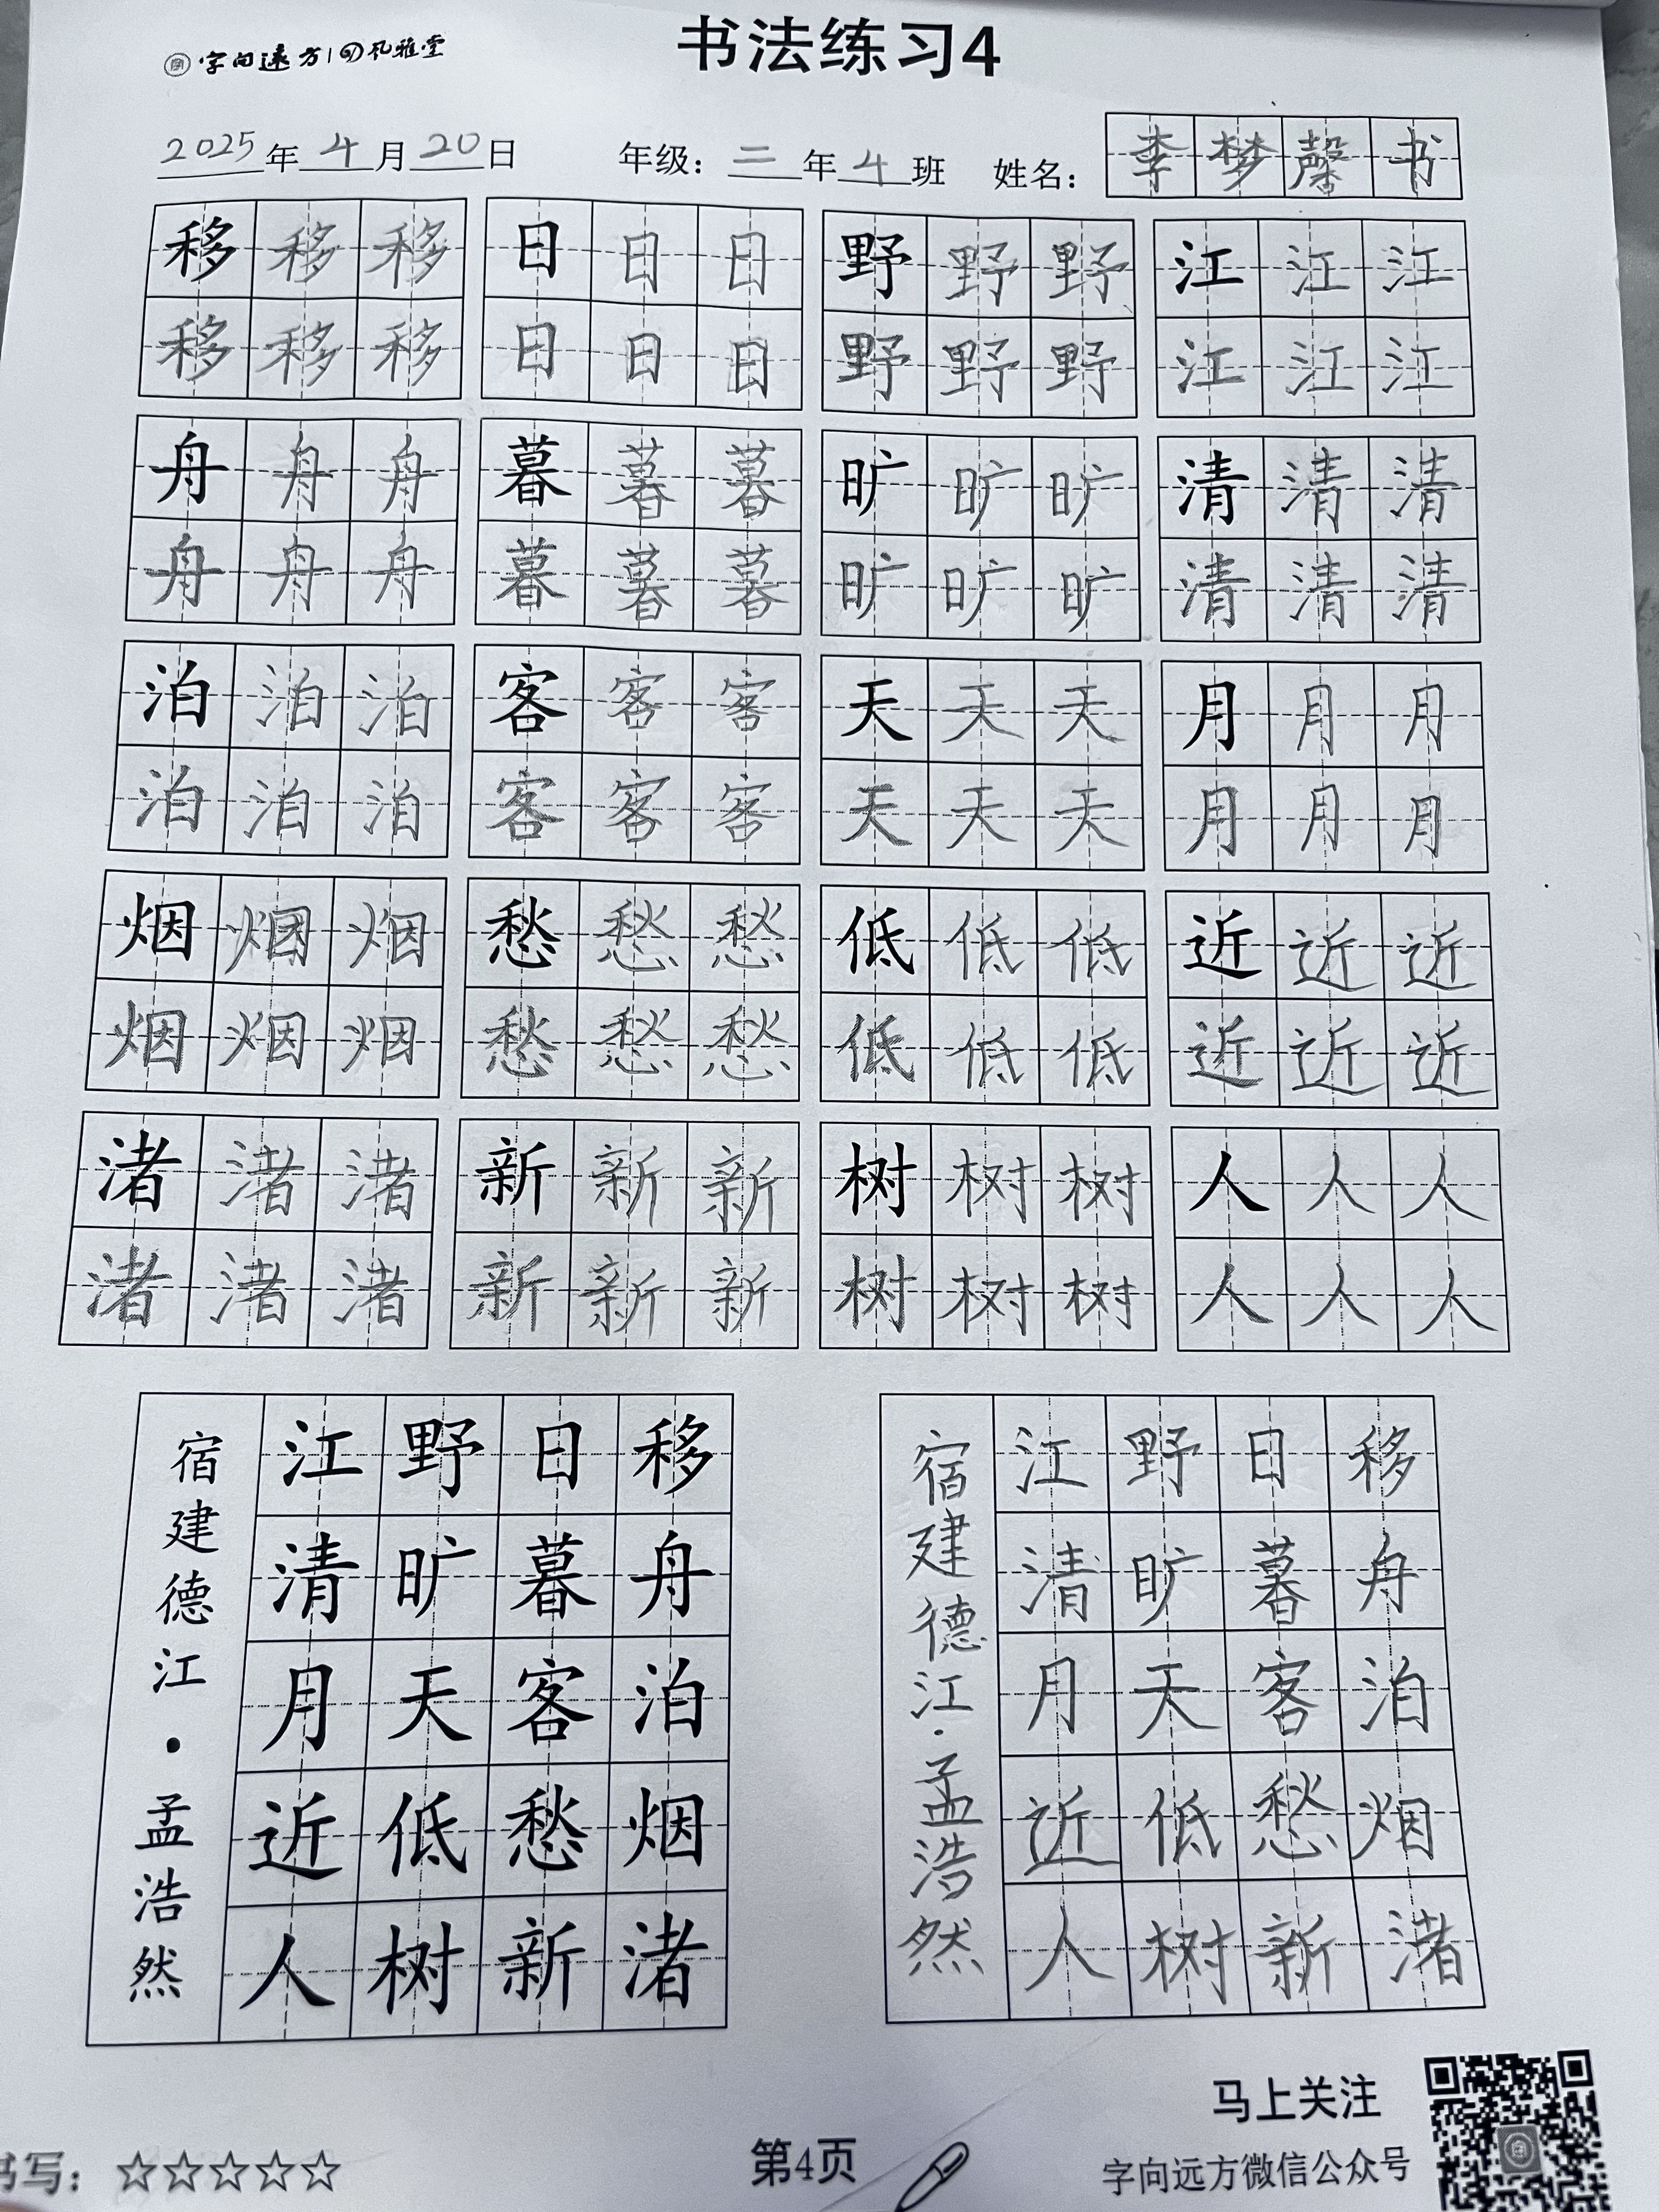 字向远方 孔雅堂
书法练习4
2025年4月20日 年级：三年4班 姓名：李梦馨书
移移移 日日日 野野野 江江江
移移移 日日日 野野野 江江江
舟舟舟 暮暮暮 旷旷旷 清清清
舟舟舟 暮暮暮 旷旷旷 清清清
泊泊泊 客客客 天天天 月月月
泊泊泊 客客客 天天天 月月月
烟烟烟 愁愁愁 低低低 近近近
烟烟烟 愁愁愁 低低低 近近近
渚渚渚 新新新 树树树 人人人
渚渚渚 新新新 树树树 人人人
移舟泊烟渚
日暮客愁新
野旷天低树
江清月近人
宿建德江·孟浩然
移舟泊烟渚
日暮客愁新
野旷天低树
江清月近人
宿建德江·孟浩然
书写：☆☆☆☆☆
第4页
马上关注
字向远方微信公众号